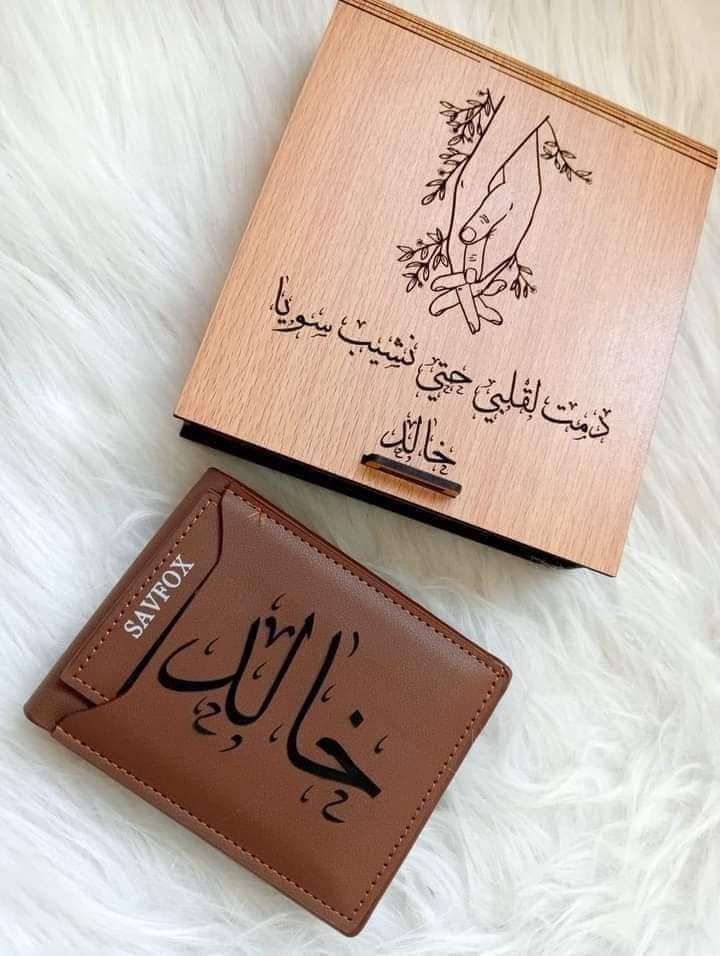 دمت لقلبي حتي نشيب سويا
خالد
SAVFOX
خالد